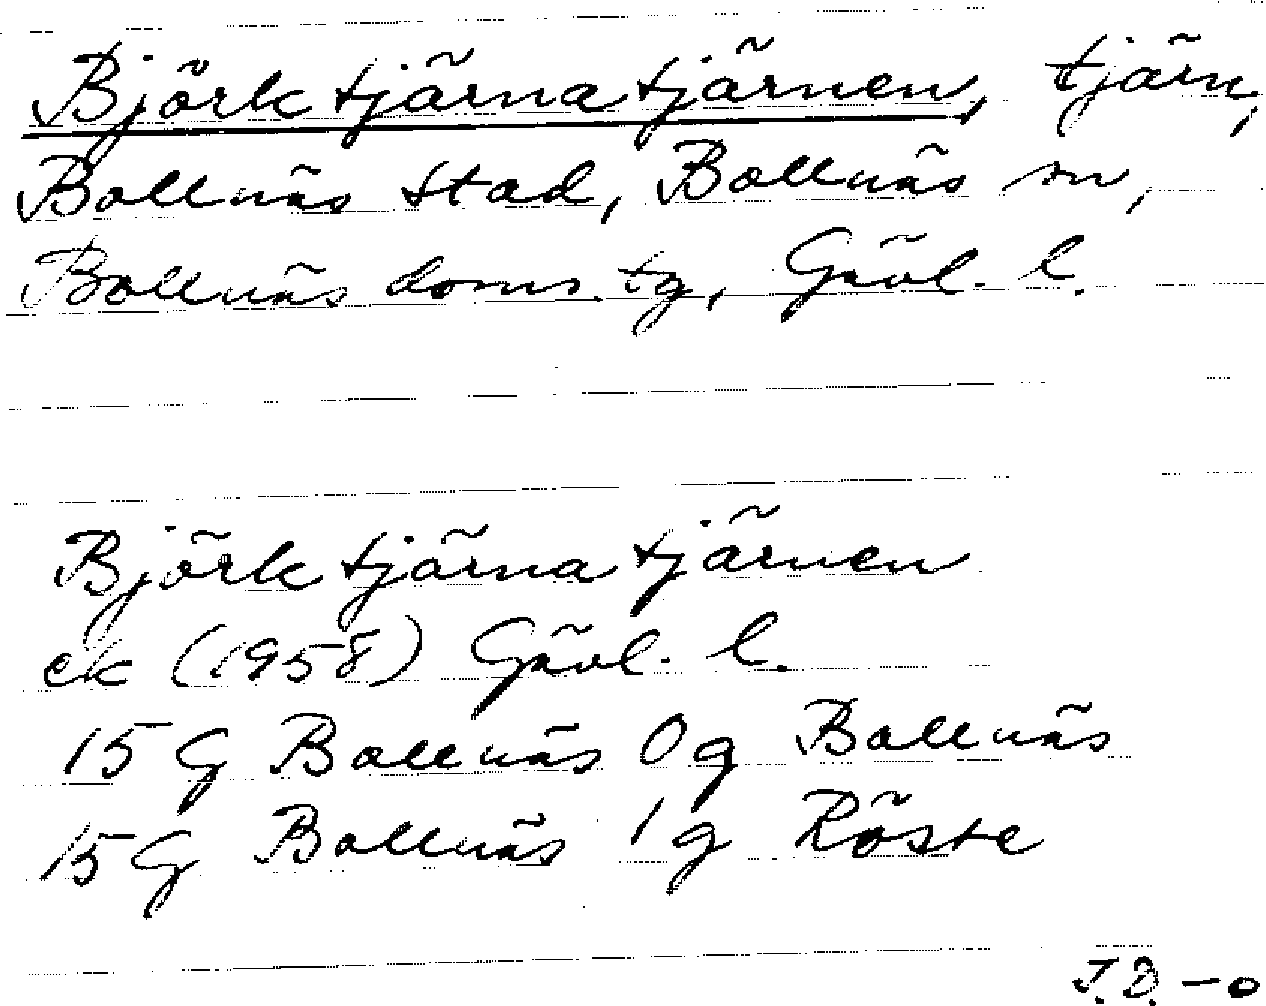 Björktjärnatjärnen, tjärn,
Bollnäs stad, Bollnäs sn,
Bollnäs doms. tg, Gävl. l.
Björktjärnatjärnen
ek (1958) Gävl. l.
15 G Bollnäs 0 g Bollnäs
15 G Bollnäs 1 g Röste
J.D. – o